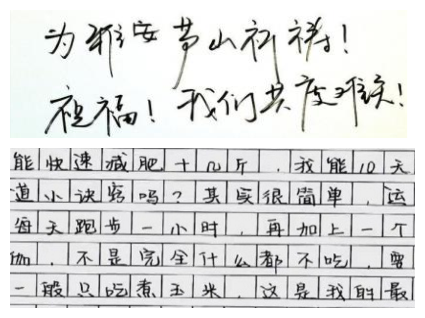 为雅安芦山祈祷!
祝福!我们共度难关!
能快速减肥十几斤,我能10天
道小诀窍吗?其实很简单,运
每天跑步一小时,再加上一个
伽,不是完全什么都不吃,要
一般只吃煮玉米,这是我的最